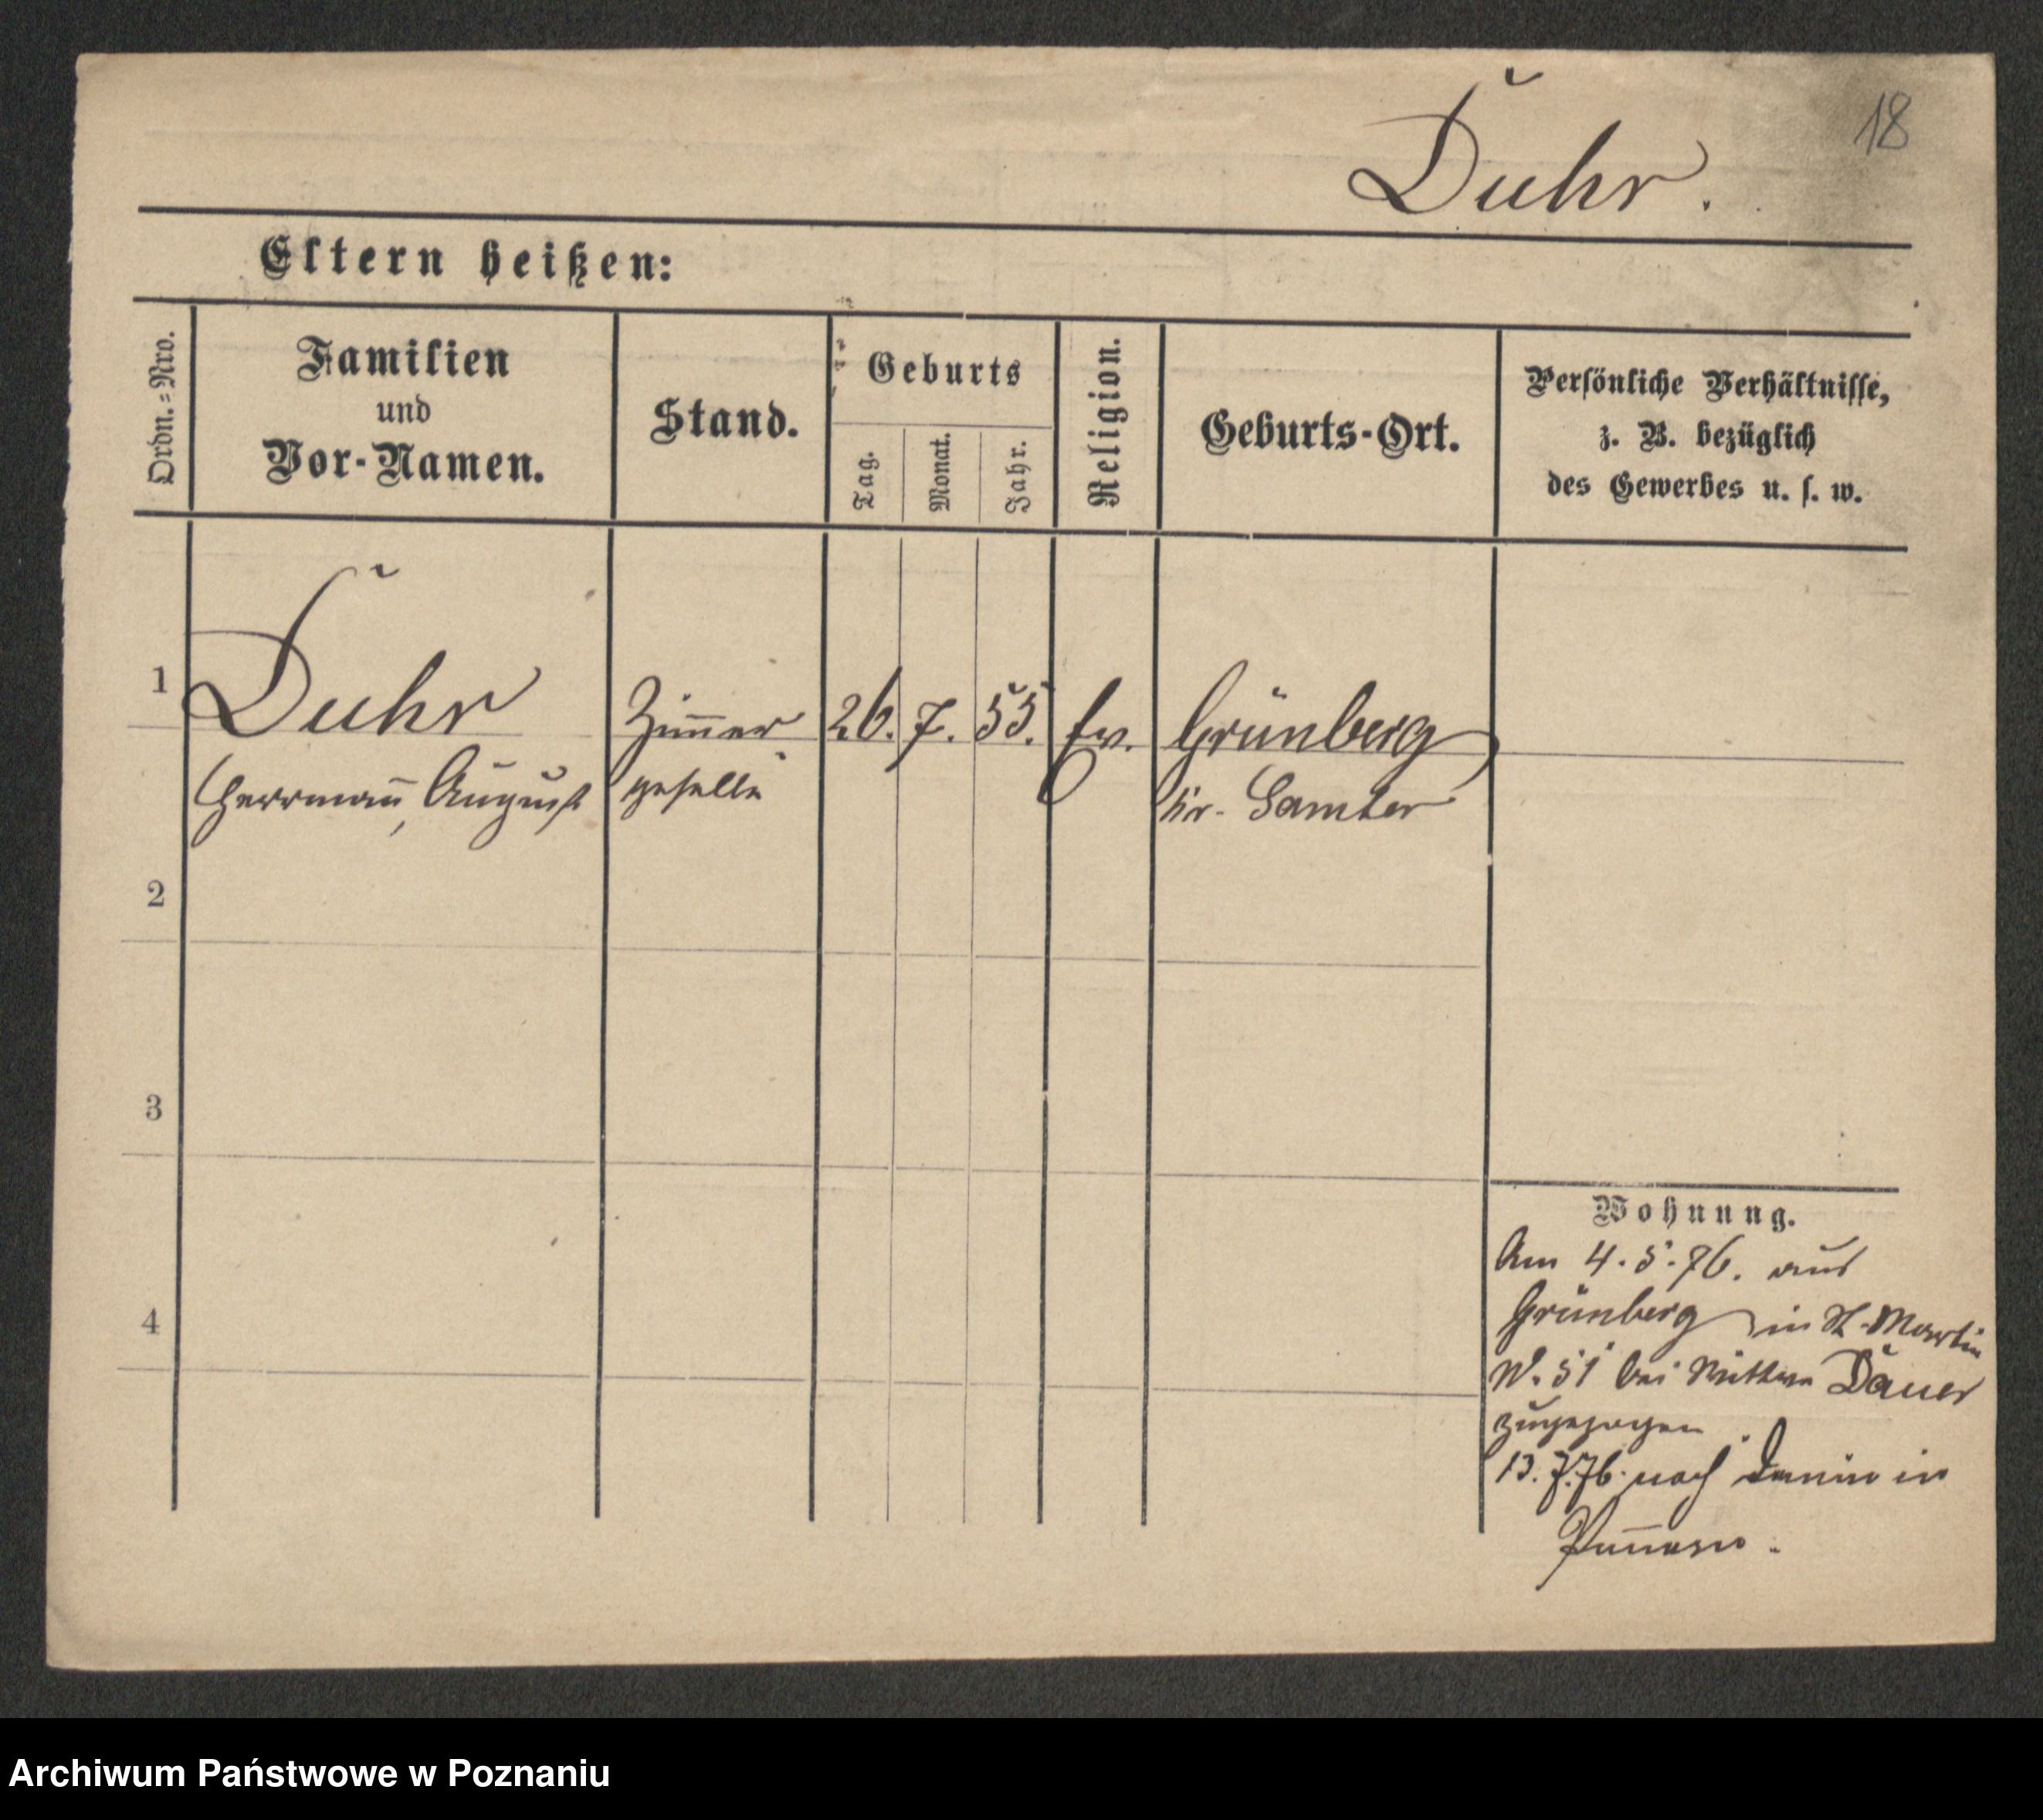 18
Duhr.
Eltern heißen:
Ordn.=Nro.
Familien
und
Vor-Namen.
Stand.
Geburts
Tag.
Monat.
Jahr.
Religion.
Geburts-Ort.
Persönliche Verhältnisse,
z. B. bezüglich
des Gewerbes u. s. w.
1
Duhr
Herrmann̄, August
Zim̄er
geselle
26.
7.
55.
Ev.
Grünberg
Kr. Samter
2
3
4
Wohnung.
Am 4.5.76. aus
Grünberg in St. Martin
N. 51 bei Wittwe Dauer
zugezogen
13.7.76. nach in
Archiwum Państwowe w Poznaniu